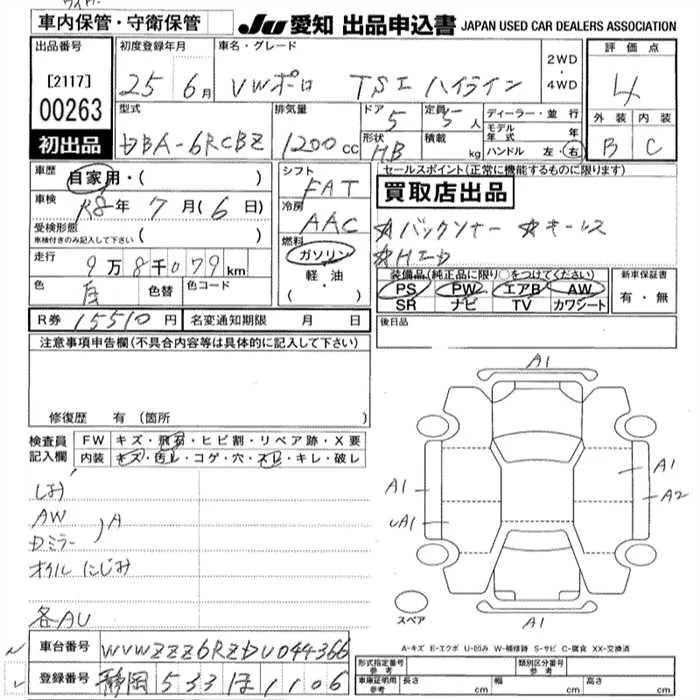 車内保管・守衛保管
JU 愛知 出品申込書 JAPAN USED CAR DEALERS ASSOCIATION
出品番号
[2117]
00263
初出品
初度登録年月
25年 6月
車名・グレード
VWポロ TSI ハイライン
2WD
・
4WD
評価点
4
外装 内装
B C
型式
DBA-6RCBZ
排気量
1200cc
ドア
5
定員
5人
形状
HB
積載
kg
ディーラー・並行
モデル年式 年
ハンドル 左・右
車歴
自家用・( )
車検
R8年 7月(6日)
受検形態
車検付きのみ記入して下さい ( )
走行
9万8千079km
色
白
色替
色コード
シフト
FAT
冷房
AAC
燃料
ガソリン
軽・油
( ・ )
セールスポイント(正常に機能するものに限ります)
買取店出品
☆バックソナー ☆キーレス
☆HID
装備品(純正品に限り○をつけてください)
PS PW エアB AW
SR ナビ TV カワシート
新車保証書
有・無
後日品
R券 15510円 名変通知期限 月 日
注意事項申告欄(不具合内容等は具体的に記入して下さい)
修復歴 有(箇所 )
検査員記入欄
FW キズ・飛石・ヒビ割・リペア跡・X要
内装 キズ・汚レ・コゲ・穴・スレ・キレ・破レ
AW
Dミラー
A
オイルにじみ
各AU
A1
A1
A1
A2
A1
A1
スペア
A-キズ E-エクボ U-凹み W-補修跡 S-サビ C-腐食 XX-交換済
車台番号 WVWZZZ6RZDU044366
登録番号 静岡 533 ほ 1106
形式指定番号
参考
類別区分番号
参考
車庫証明用
参考
長さ cm 幅 cm 高さ cm